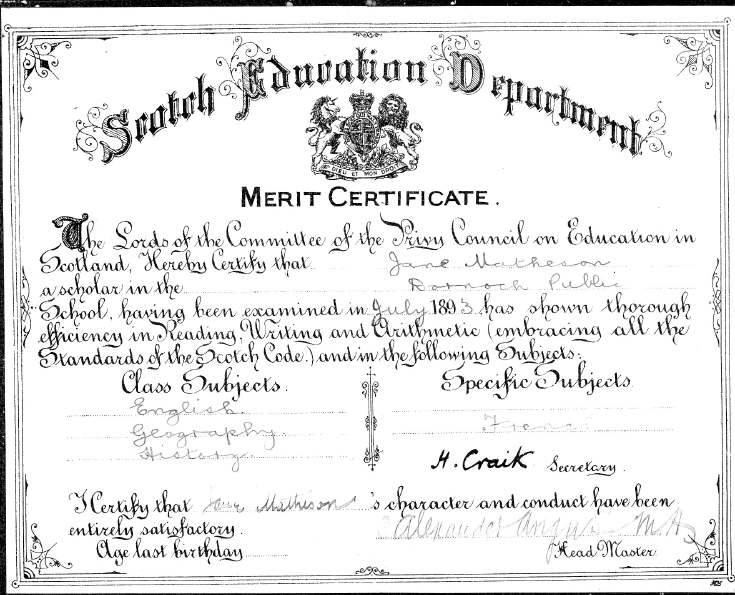 Scotch Education Department
DIEU ET MON DROIT
MERIT CERTIFICATE.
The Lords of the Committee of the Privy Council on Education in
Scotland, Hereby Certify that Jane Matheson
a scholar in the Dornoch Public
School, having been examined in July 1893 has shown thorough
efficiency in Reading, Writing and Arithmetic (embracing all the
Standards of the Scotch Code.) and in the following Subjects:
Class Subjects. Specific Subjects
English
Geography French
History
H. Craik Secretary.
I Certify that Jane Matheson 's character and conduct have been
entirely satisfactory. Alexander Angus M.A.
Age last birthday Head Master